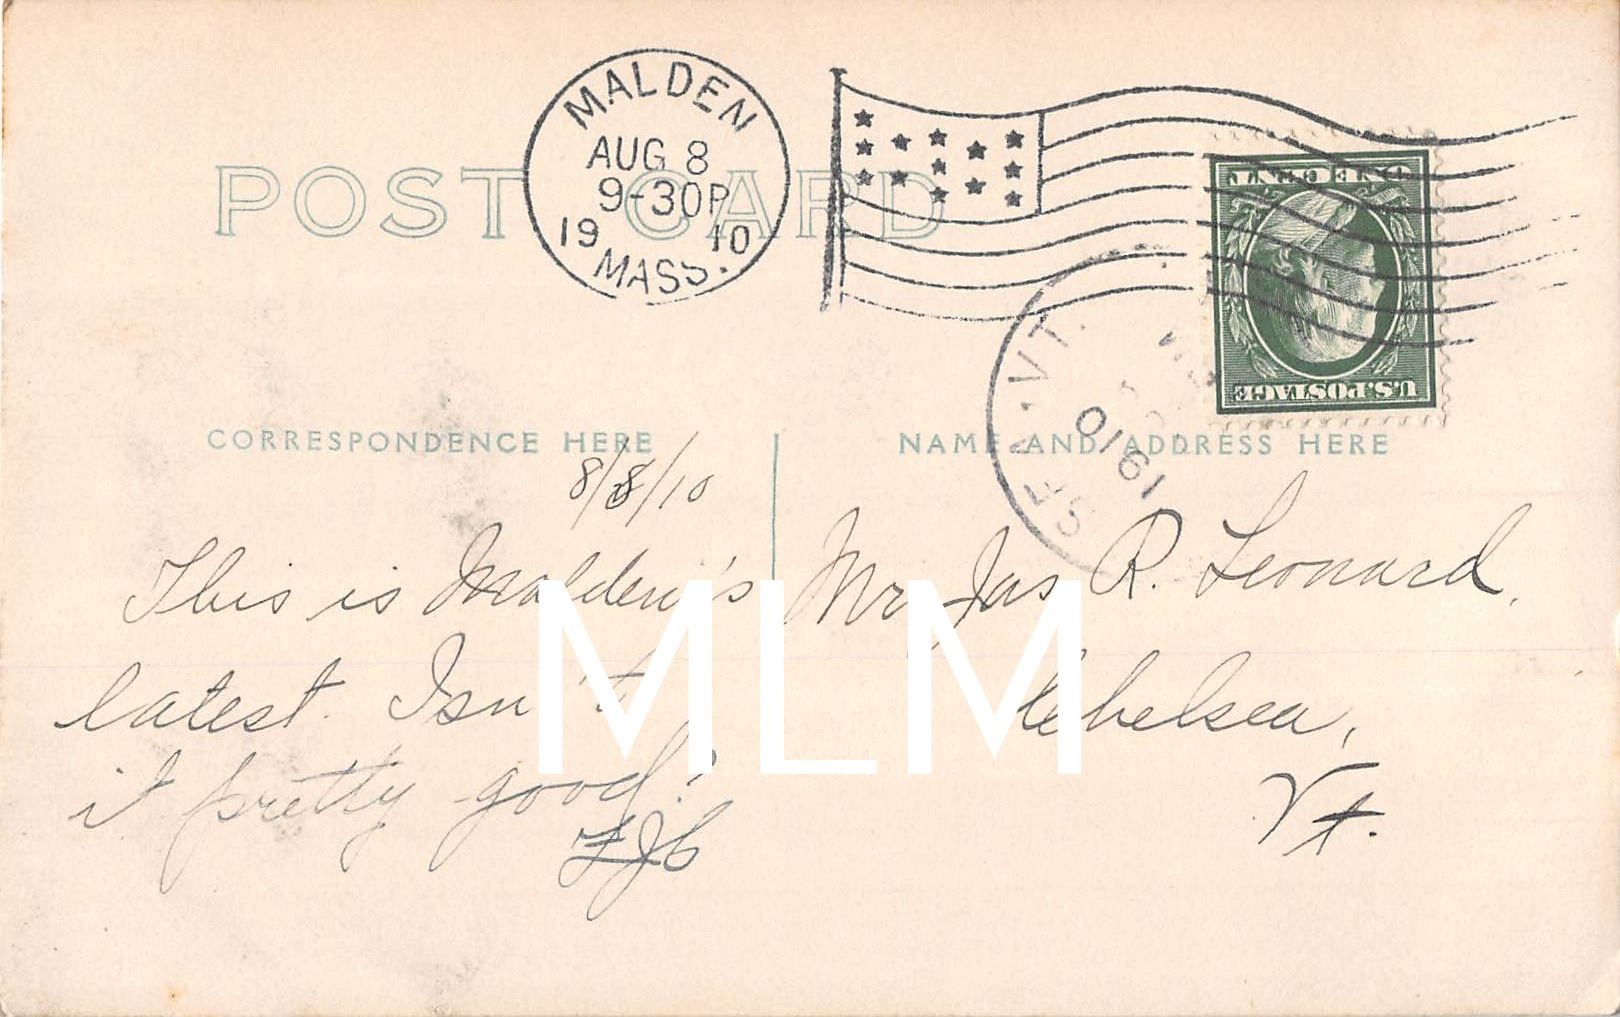 MALDEN
AUG 8
9-30P
19 10
MASS.
POST CARD
U.S. POSTAGE
VT.
1910
CORRESPONDENCE HERE
NAME AND ADDRESS HERE
8/8/10
This is Malden's
latest. Isn't
it pretty good?
Mr Jas R. Leonard,
Chelsea,
Vt.
MLM